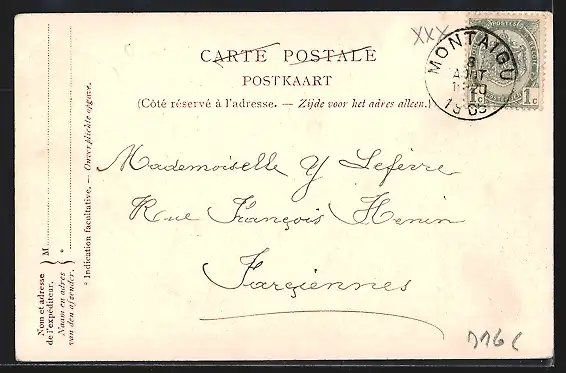 CARTE POSTALE
POSTKAART
(Côté réservé à l'adresse. — Zijde voor het adres alleen.)
XXX
MONTAIGU
8
AOUT
11-20
POSTES
1c 1c
Mademoiselle Y Lefèvre
Rue François Henin
Farçiennes
M
Nom et adresse
de l'expéditeur.
Naam en adres
van den afzender.
*
* Indication facultative. — Onverplichte opgave.